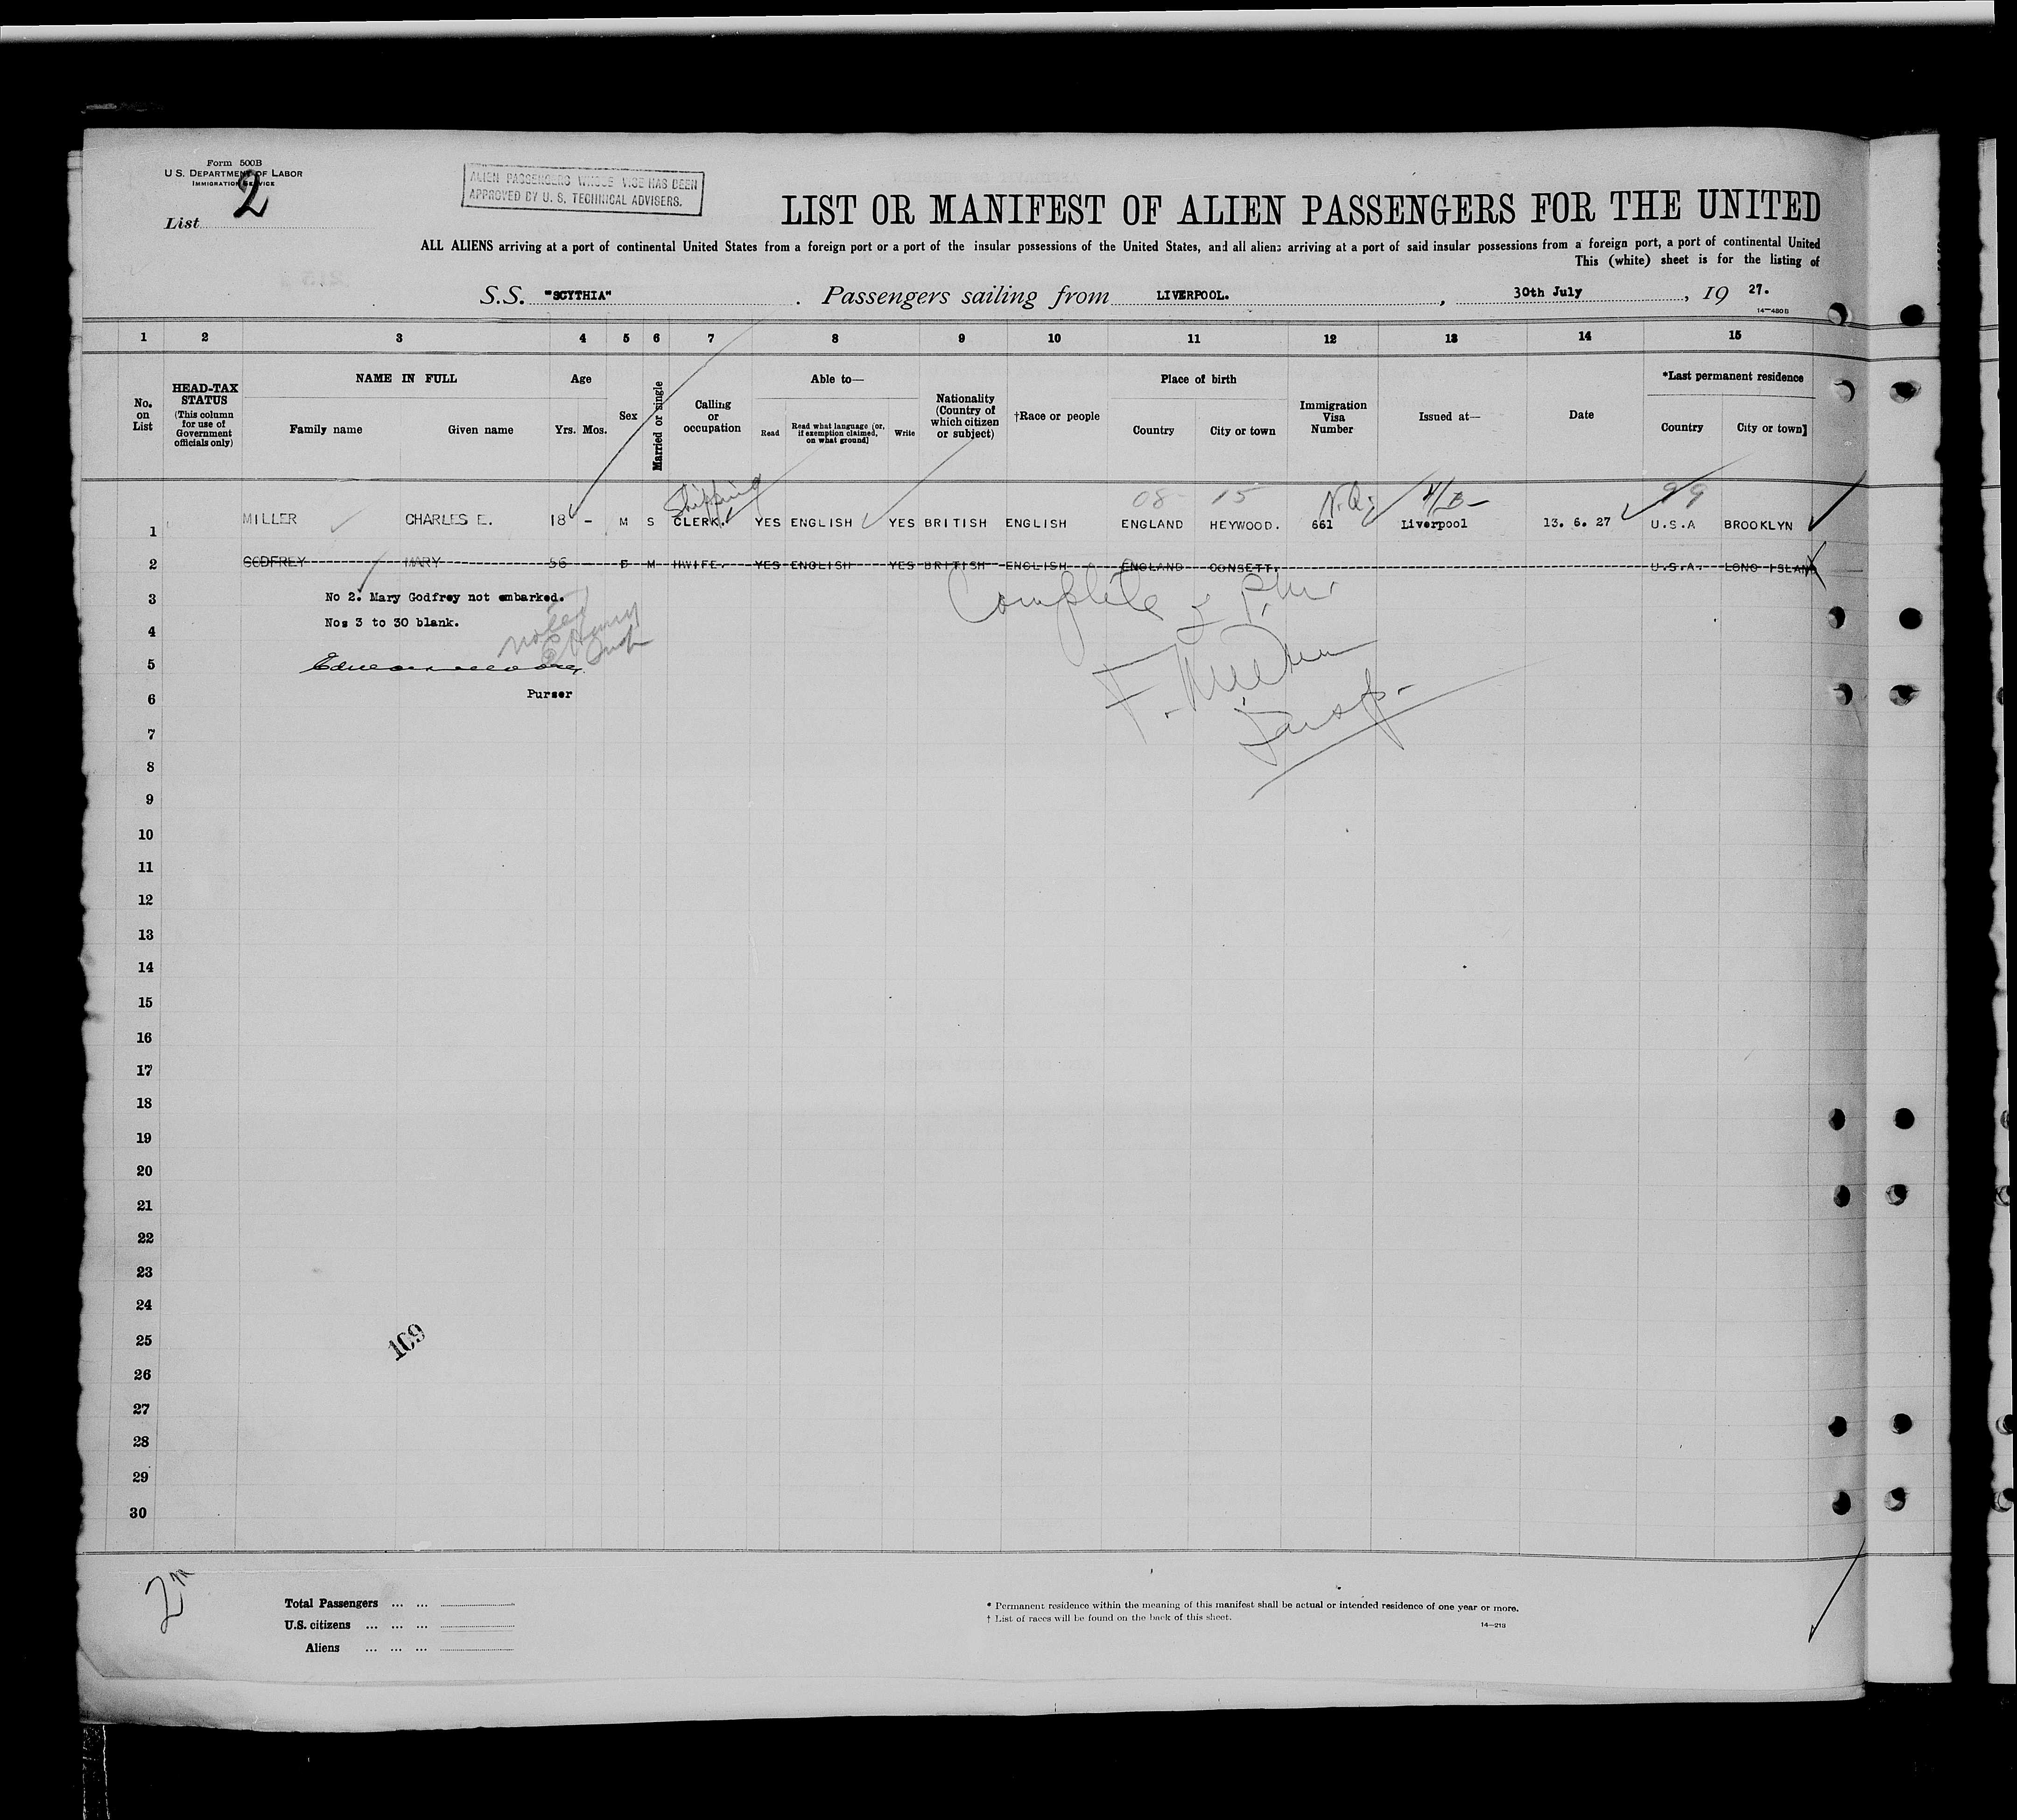 Form 500B
U. S. DEPARTMENT OF LABOR
IMMIGRATION SERVICE
List 2
ALIEN PASSENGERS WHOSE VISE HAS BEEN
APPROVED BY U. S. TECHNICAL ADVISERS.
LIST OR MANIFEST OF ALIEN PASSENGERS FOR THE UNITED
ALL ALIENS arriving at a port of continental United States from a foreign port or a port of the insular possessions of the United States, and all aliens arriving at a port of said insular possessions from a foreign port, a port of continental United
This (white) sheet is for the listing of
S.S. "SCYTHIA" . Passengers sailing from LIVERPOOL. , 30th July , 19 27.
14—480B
1 2 3 4 5 6 7 8 9 10 11 12 13 14 15
No. on List
HEAD-TAX STATUS (This column for use of Government officials only)
NAME IN FULL
Family name Given name
Age
Yrs. Mos.
Sex
Married or single
Calling or occupation
Able to—
Read Read what language [or, if exemption claimed, on what ground] Write
Nationality (Country of which citizen or subject)
†Race or people
Place of birth
Country City or town
Immigration Visa Number
Issued at—
Date
*Last permanent residence
Country City or town]
Shipping 08 15 99
1 MILLER CHARLES E. 18 - M S CLERK. YES ENGLISH YES BRITISH ENGLISH ENGLAND HEYWOOD. 661 Liverpool 13. 6. 27 U.S.A BROOKLYN
2 GODFREY MARY 56 F M HWIFE. YES ENGLISH YES BRITISH ENGLISH ENGLAND CONSETT. U.S.A. LONG ISLAND
Complete
3 No 2. Mary Godfrey not embarked.
noted
4 Nos 3 to 30 blank.
5
Purser
6
7
8
9
10
11
12
13
14
15
16
17
18
19
20
21
22
23
24
25
169
26
27
28
29
30
Total Passengers ... ...
U.S. citizens ... ... ...
Aliens ... ... ...
* Permanent residence within the meaning of this manifest shall be actual or intended residence of one year or more.
† List of races will be found on the back of this sheet.
14—219